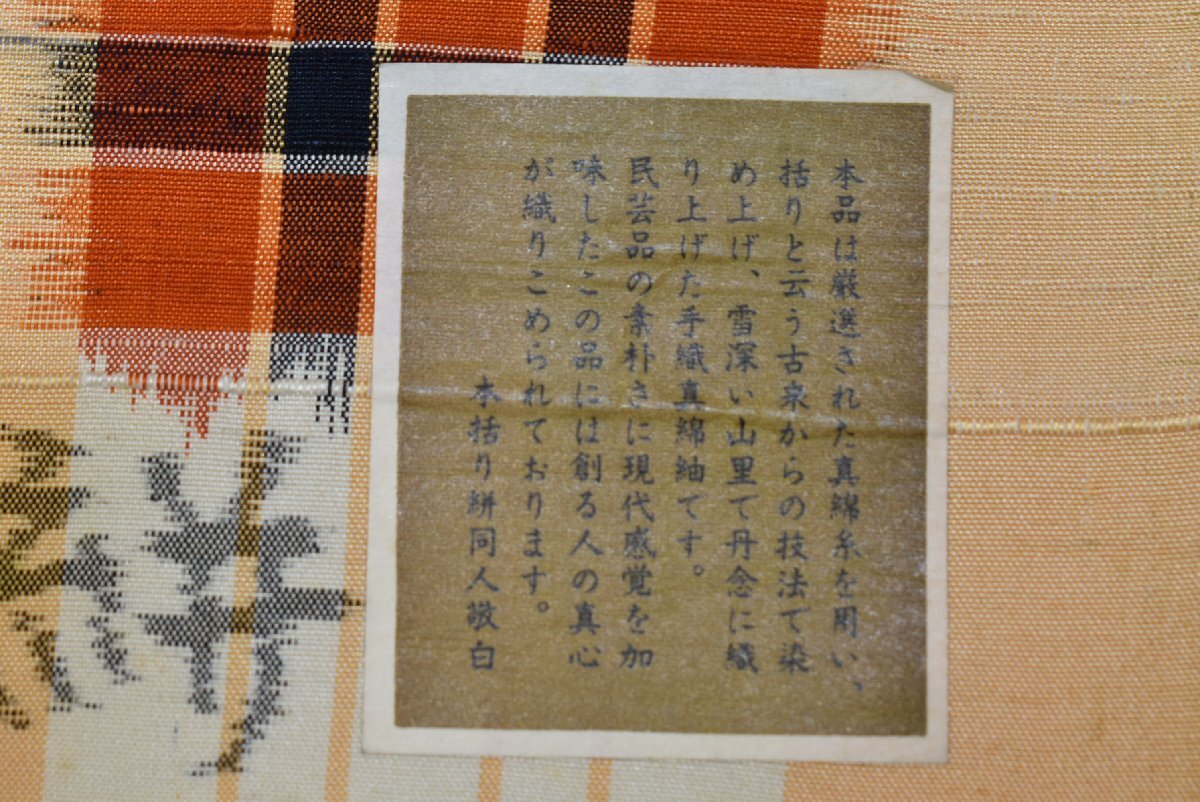 本品は厳選された真綿糸を用い、
括りと云う古泉からの技法で染
め上げ、雪深い山里て丹念に織
り上げた手織真綿紬です。
民芸品の素朴さに現代感覚を加
味したこの品には創る人の真心
が織りこめられております。
本括り絣同人敬白